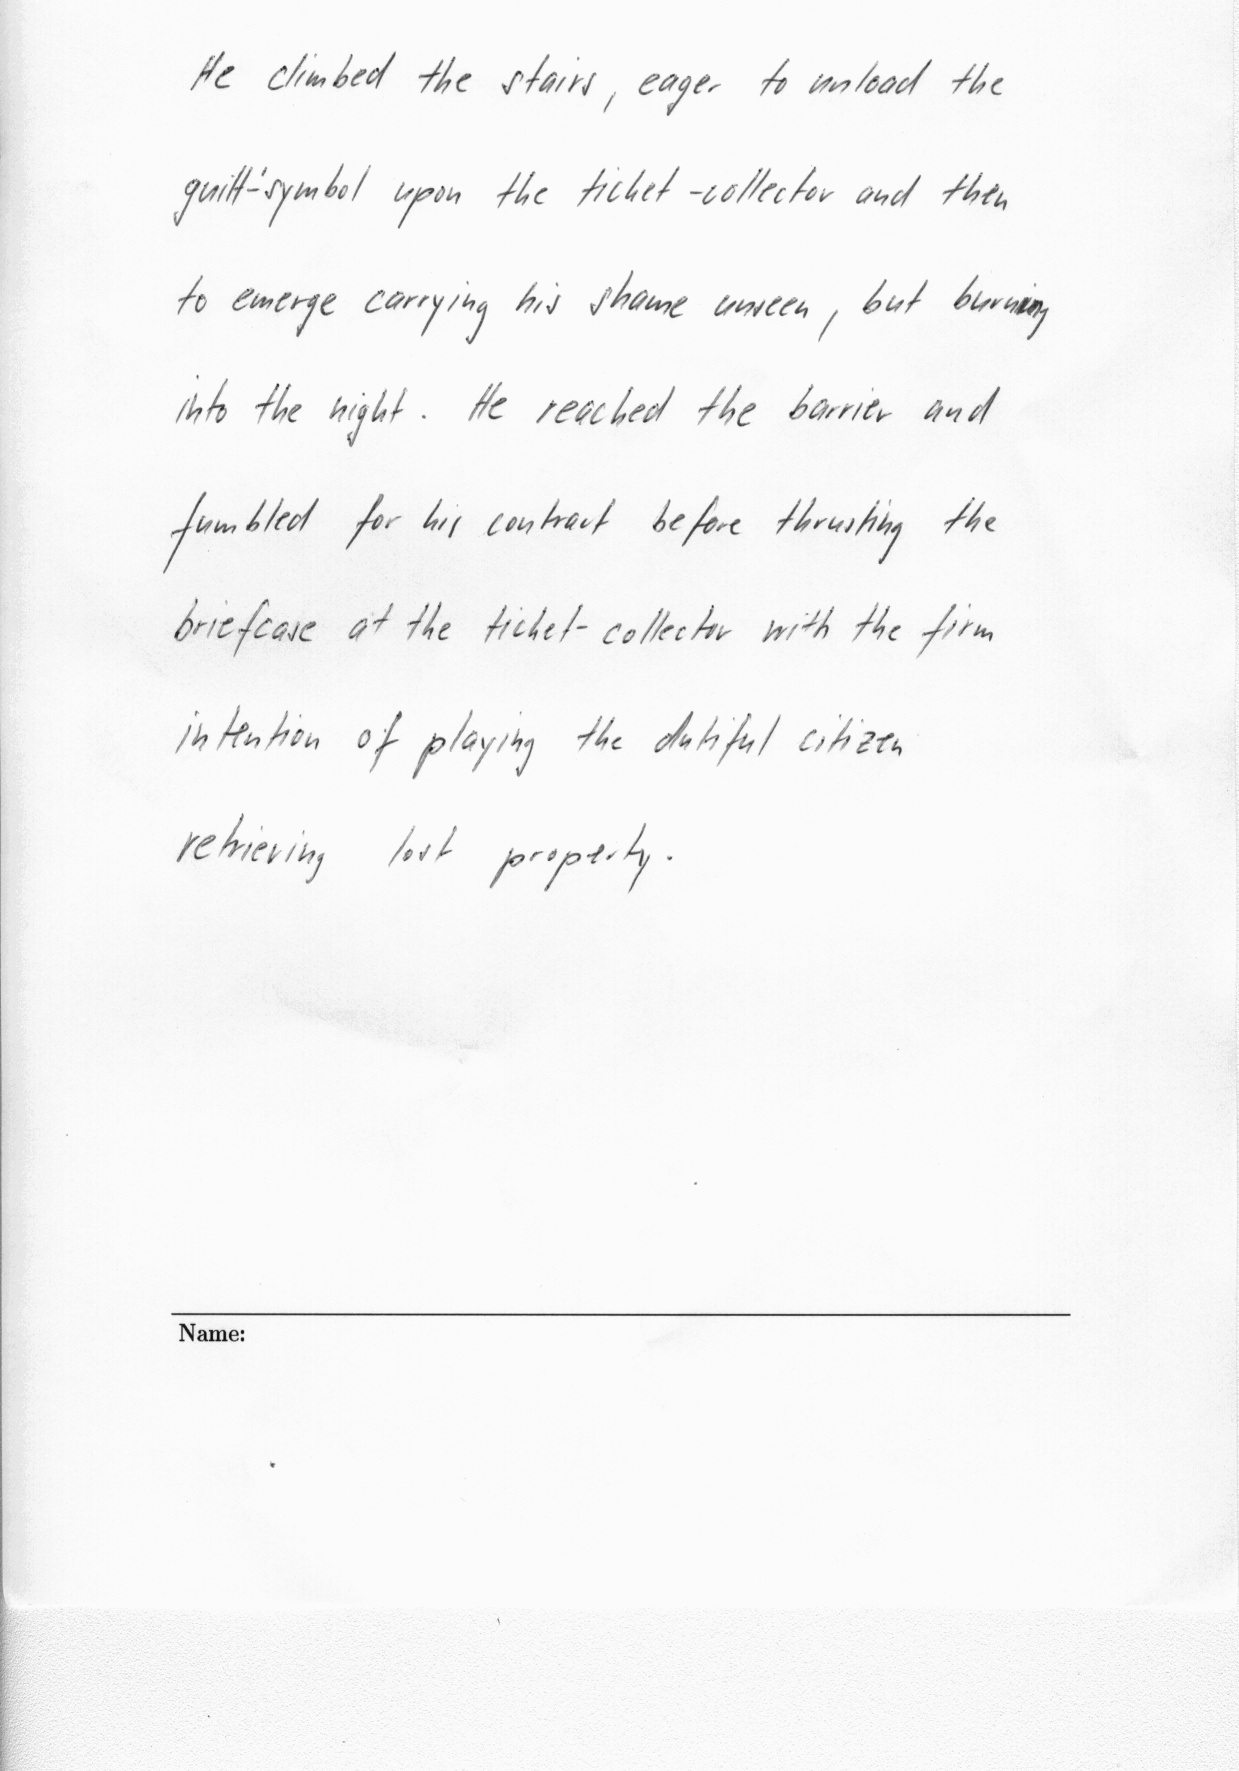 He climbed the stairs, eager to unload the
guilt-symbol upon the ticket-collector and then
to emerge carrying his shame unseen, but burning
into the night. He reached the barrier and
fumbled for his contract before thrusting the
briefcase at the ticket-collector with the firm
intention of playing the dutiful citizen
retrieving lost property.
Name: